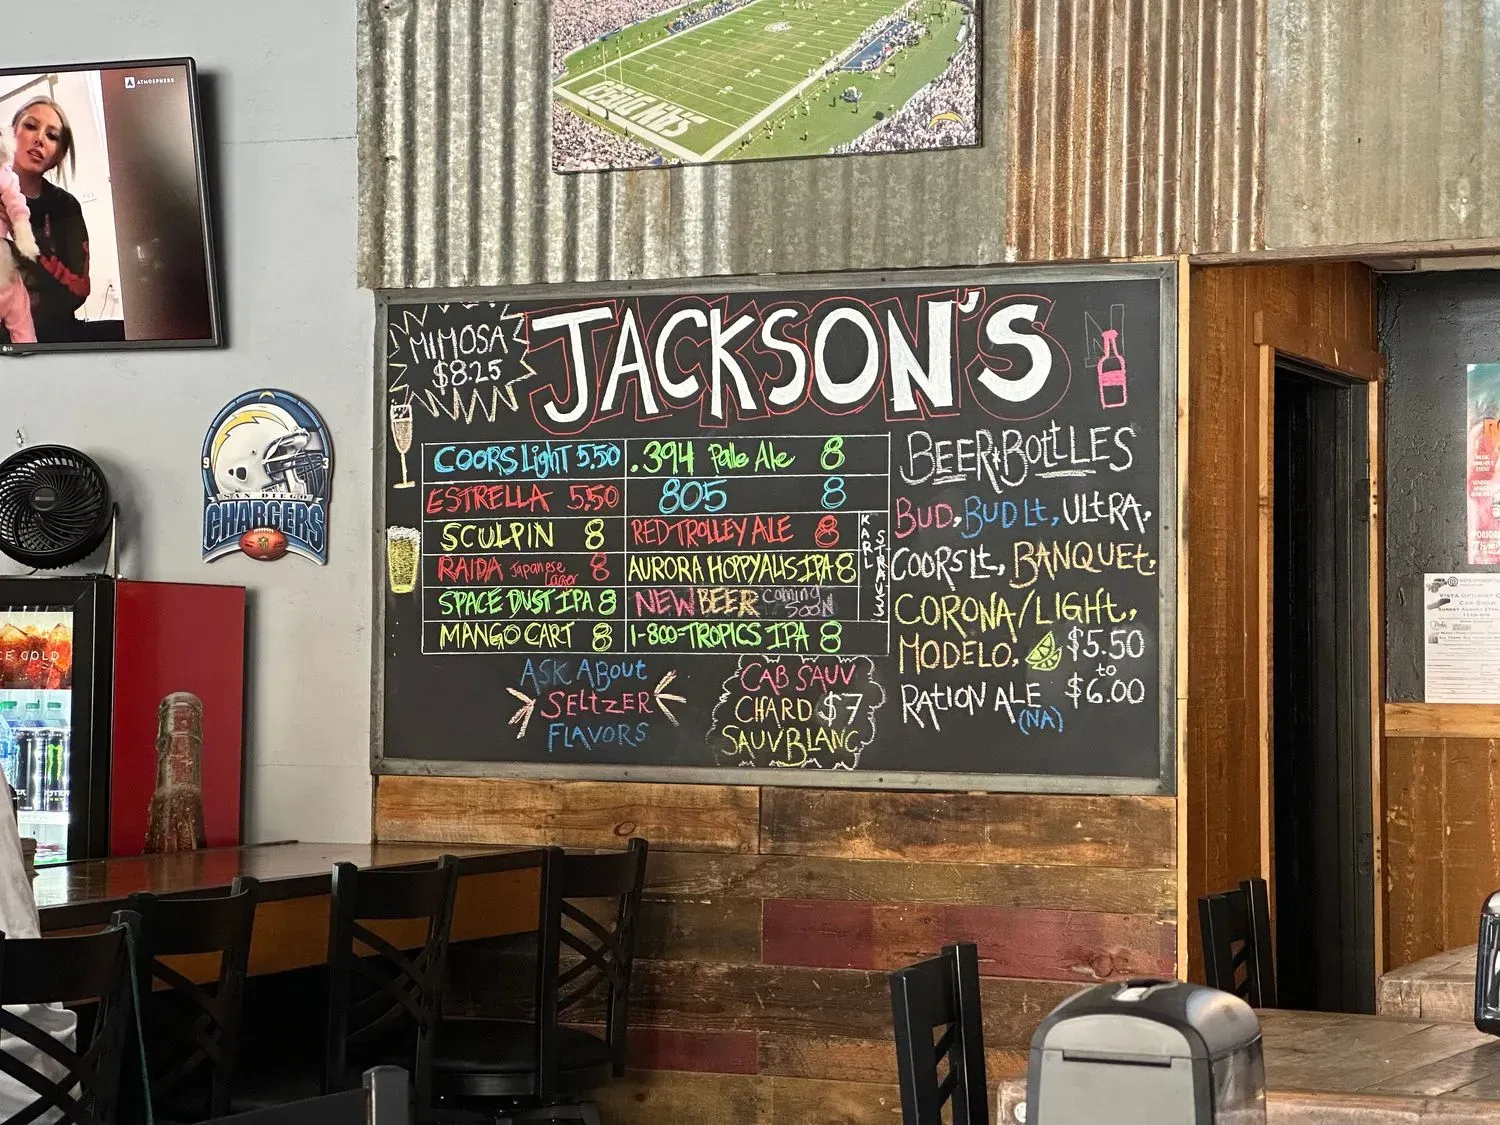 ATMOSPHERE
SAN DIEGO
LG
SAN DIEGO
CHARGERS
NFL
ICE COLD
MIMOSA
$8.25
JACKSON'S
COORS Light 5.50
ESTRELLA 5.50
SCULPIN 8
RAIDA Japanese Lager 8
SPACE DUST IPA 8
MANGO CART 8
.394 Pale Ale 8
805 8
RED TROLLEY ALE 8
KARL STRAUSS
AURORA HOPPYALIS IPA 8
NEW BEER Coming Soon
1-800-TROPICS IPA 8
ASK ABOUT
SELTZER
FLAVORS
CAB SAUV
CHARD $7
SAUV BLANC
BEER BOttLES
BUD, BUD Lt, ULtRA,
COORS Lt, BANQUEt,
CORONA/LIGHT,
MODELO, $5.50
to
RAtION ALE $6.00
(NA)
VISTA OPTIMIST C
CAR SHOW